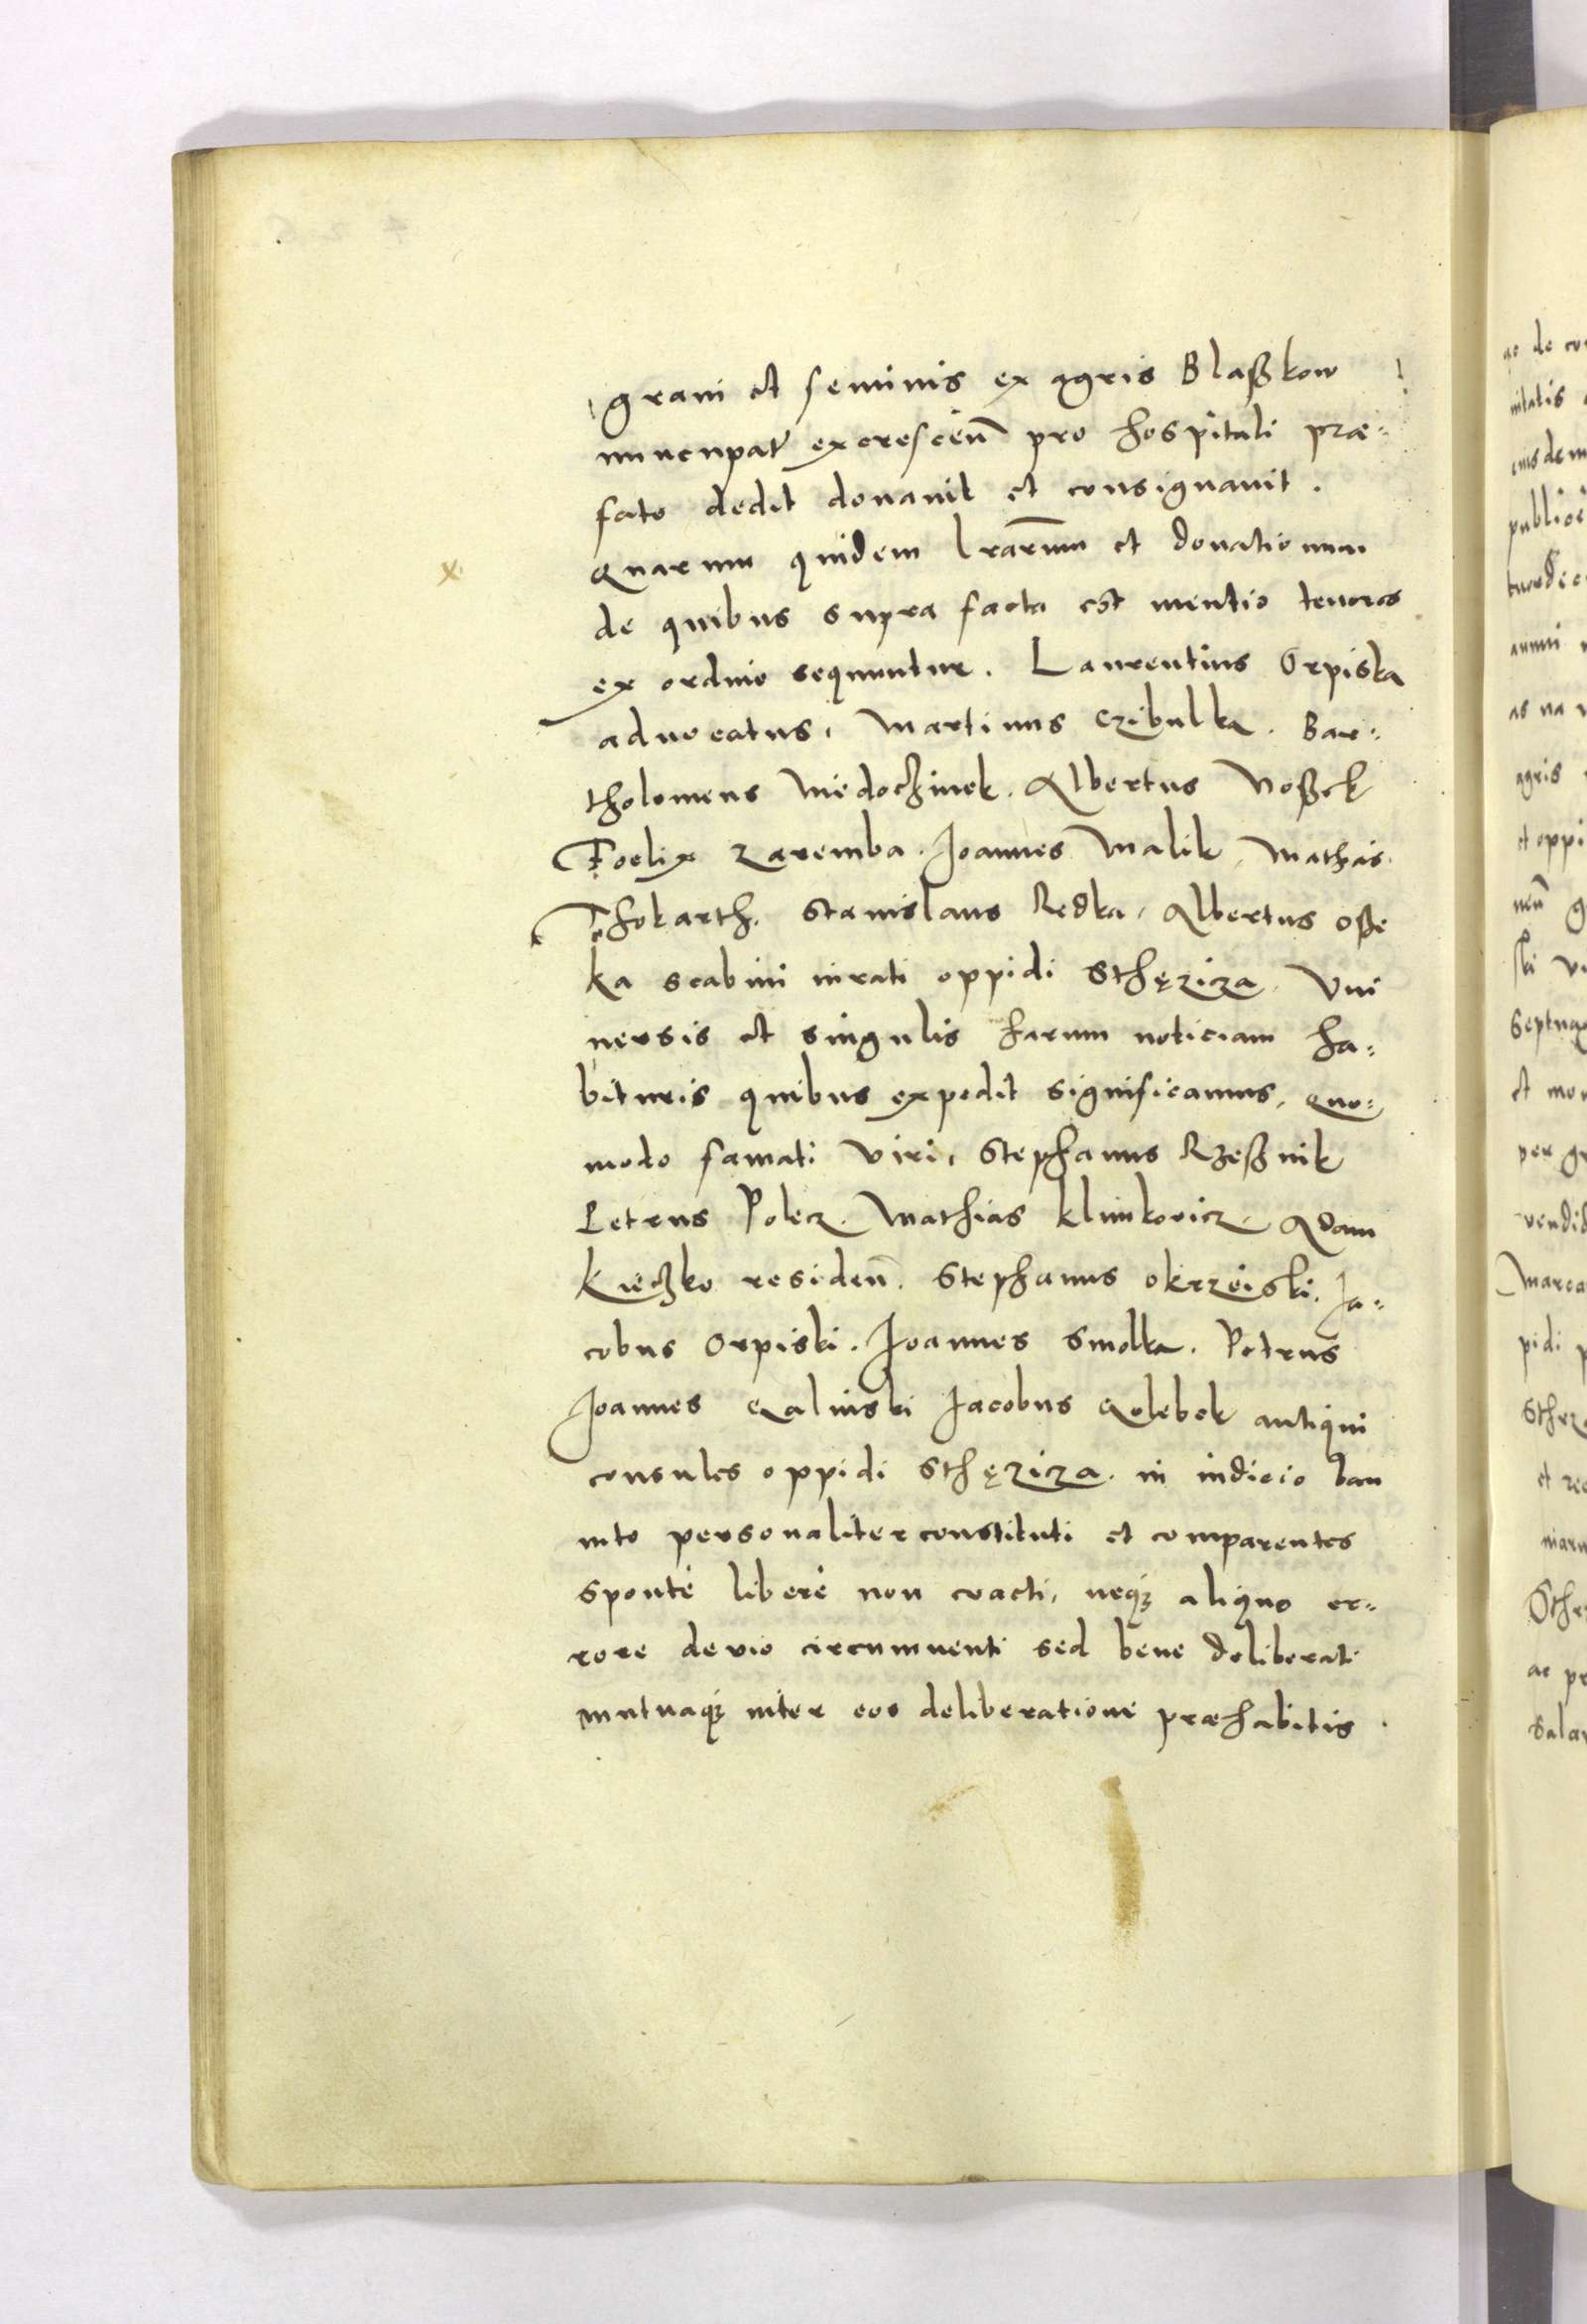 grani et seminis ex agris Blaßkow
nuncupat' excrescen̄ pro hospitali præ-
fato dedit donavit et consignavit.
Quarum quidem lrārum et donationum
de quibus supra facta est mentio tenores
ex ordine sequuntur. Laurentius Orpiska
aduocatus, Martinus Czibulka. Bar-
tholomeus Miedochinek. Albertus Noßek
Foelix Zaremba. Joannes Malik. Mathias
Thokarth. Stanislaus Redka, Albertus Oße
ka scabini iurati oppidi Sthęzicza. Vni
uersis et singulis harum noticiam ha-
bituris quibus expedit significamus, Quo-
modo famati viri, Stephanus Rzeßnik
Petrus Polecz. Mathias Klimkovicz. Adam
Kieczko residen̄. Stephanus Okrzeiski. Ja-
cobus Orpiski. Joannes Smolka. Petrus
Joannes Qalinski Jacobus Qolebek antiqui
consules oppidi Sthęzicza. in iudicio ban
nito personaliter constituti et comparentes
sponte libere non coacti, neq3 aliquo er-
rore devio circumuenti sed bene deliberati
mutuaq3 inter eos deliberatione præhabitis.
ac de
nitatis
eiusdem
publice
agris
et oppi
septuag
et mo
per gr
vendid
Marca
pidi
Sthez
et rec
ac pr